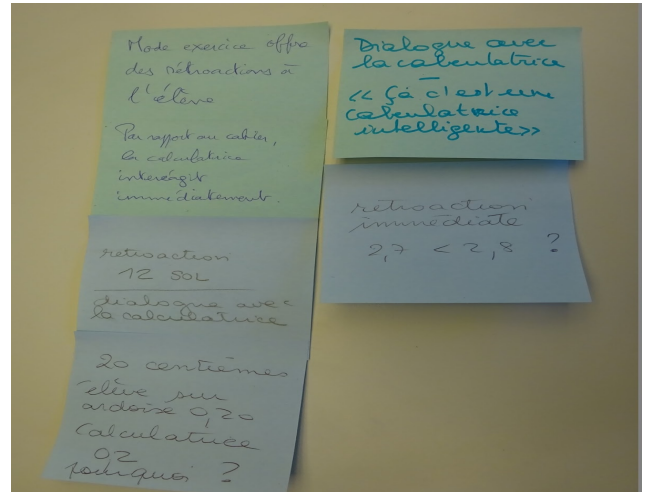 Mode exercice offre
des rétroactions à
l'élève
Par rapport au cahier,
la calculatrice
interéagit
immédiatement.
retroaction
12 SOL
dialogue avec
la calculatrice
20 centièmes
élève sur
ardoise 0,20
Calculatrice
02
pourquoi ?
Dialogue avec
la calculatrice
—
<< Çà c'est une
calculatrice
intelligente>>
retroaction
immédiate
2,7 < 2,8 ?